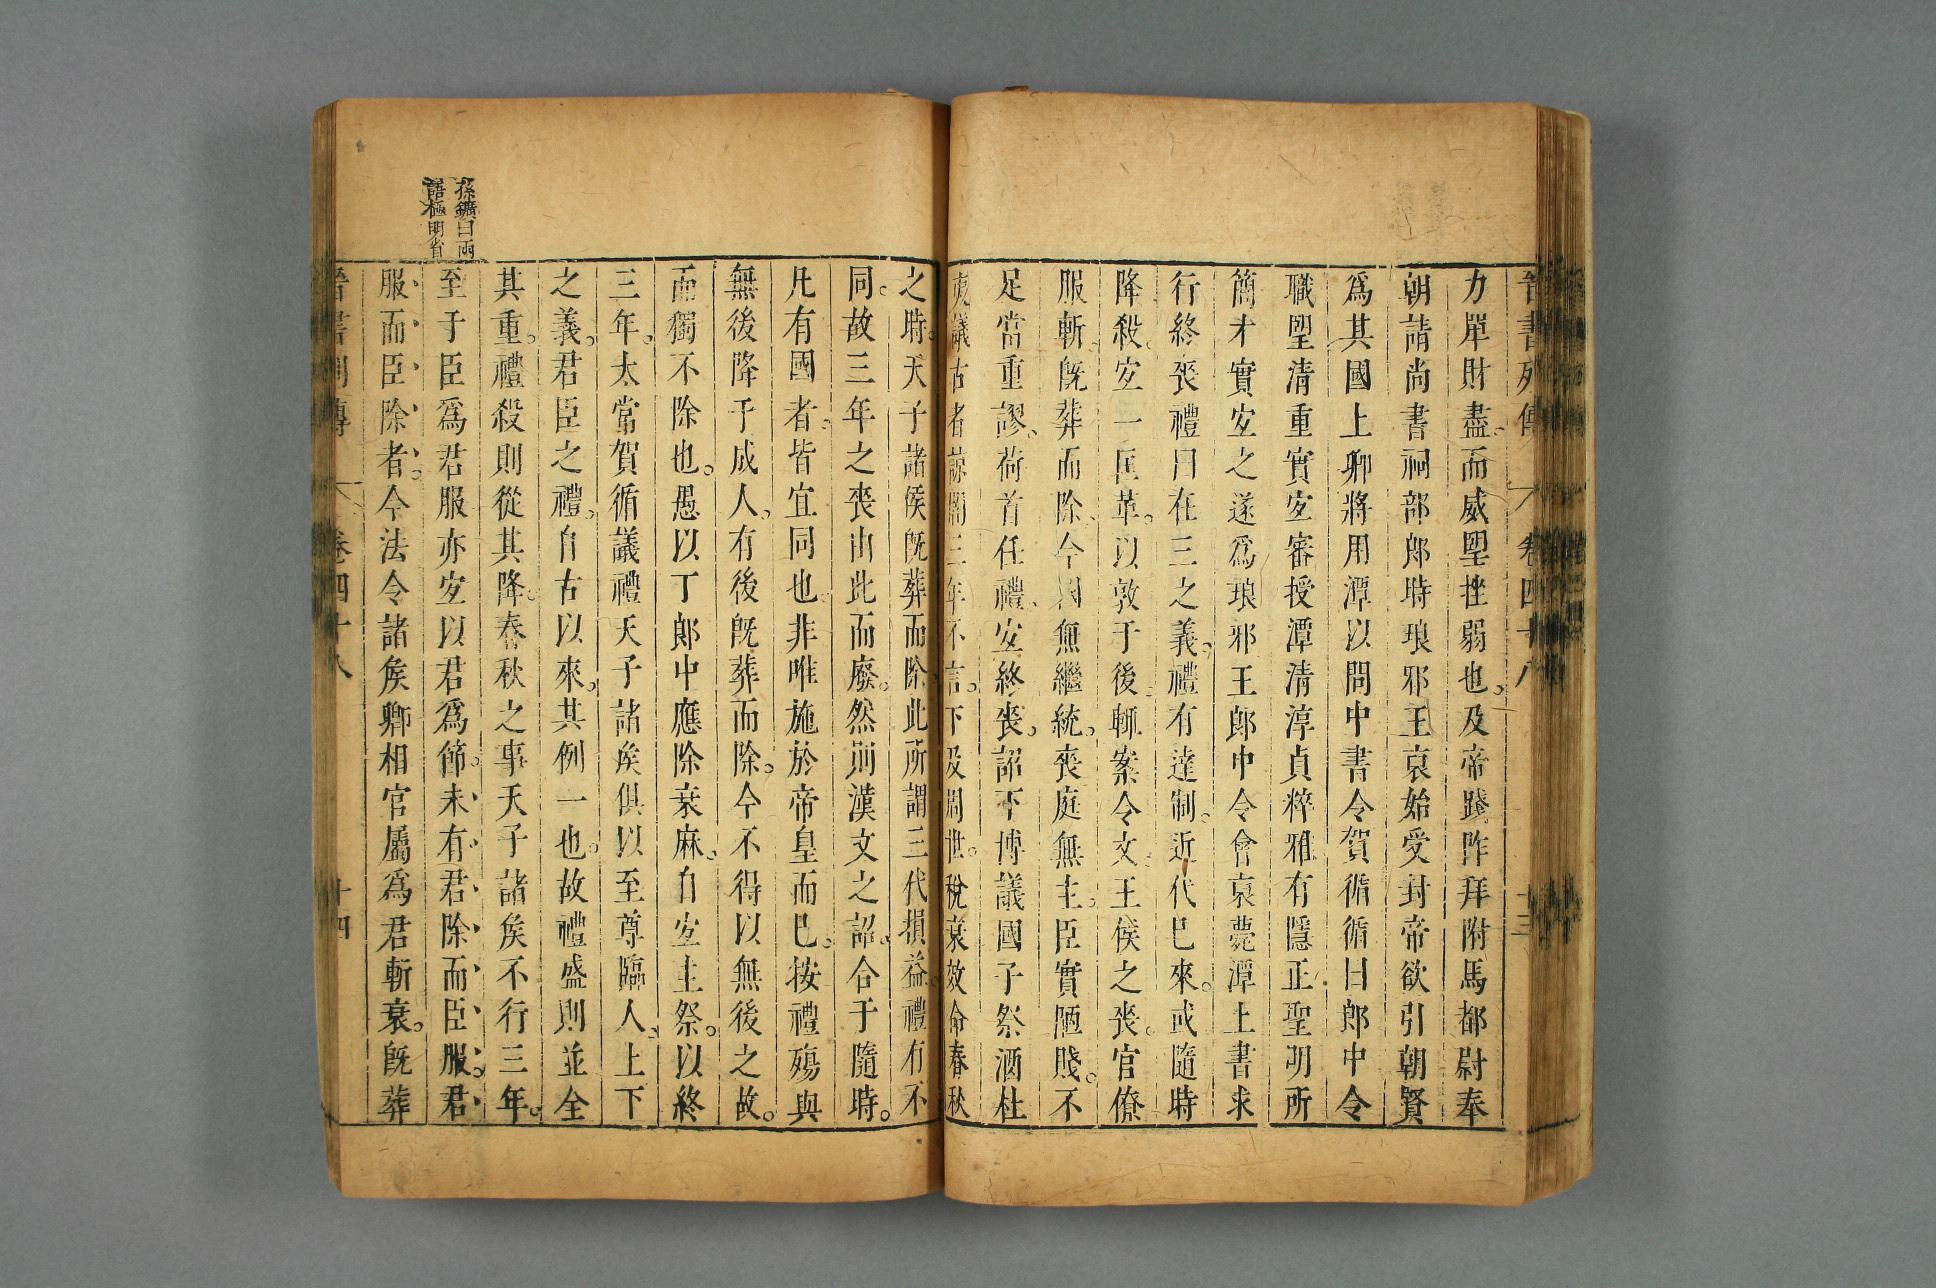 晉書列傳 卷四十八 十三
力單財盡而威望挫弱也及帝踐阼拜附馬都尉奉
朝請尚書祠部郎時琅邪王裒始受封帝欲引朝賢
爲其國上卿將用潭以問中書令賀循循曰郎中令
職望清重實宜審授潭清淳貞粹雅有隱正聖明所
簡才實宜之遂爲琅邪王郎中令會裒薨潭上書求
行終喪禮曰在三之義禮有達制近代已來或隨時
降殺宜一匡革以敦于後輒案令文王侯之喪官僚
服斬旣葬而除今國無繼統喪庭無主臣實陋賤不
足當重謬荷首任禮宜終喪詔下博議國子祭酒杜
夷議古者諒闇三年不言下及周世稅衰效命春秋
之時天子諸侯旣葬而除此所謂三代損益禮有不
同故三年之喪由此而廢然則漢文之詔合于隨時
凡有國者皆宜同也非唯施於帝皇而已按禮殤與
無後降于成人有後旣葬而除今不得以無後之故
而獨不除也愚以丁郎中應除衰麻自宜主祭以終
三年太常賀循議禮天子諸侯俱以至尊臨人上下
之義君臣之禮自古以來其例一也故禮盛則並全
其重禮殺則從其降春秋之事天子諸侯不行三年
至于臣爲君服亦宜以君爲節未有君除而臣服君
服而臣除者今法令諸侯卿相官屬爲君斬衰旣葬
孫鑛曰兩
語極明省
晉書列傳 卷四十八 十四